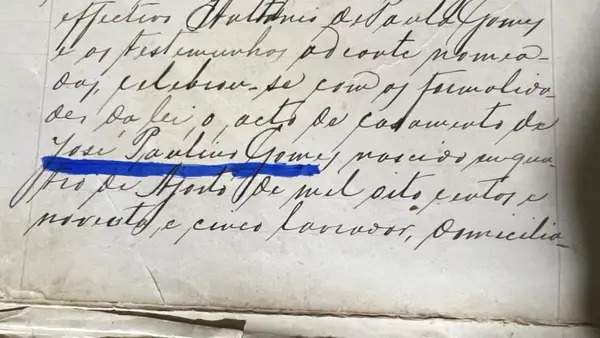 effectivo Antonio de Paula Gomes
e as testemunhas adeante nomea-
das, celebrou-se com as formalida-
des da lei, o acto de casamento de
José Paulino Gomes, nascido em qua-
tro de Agosto de mil oito centos e
noventa e cinco, lavrador, domicilia-